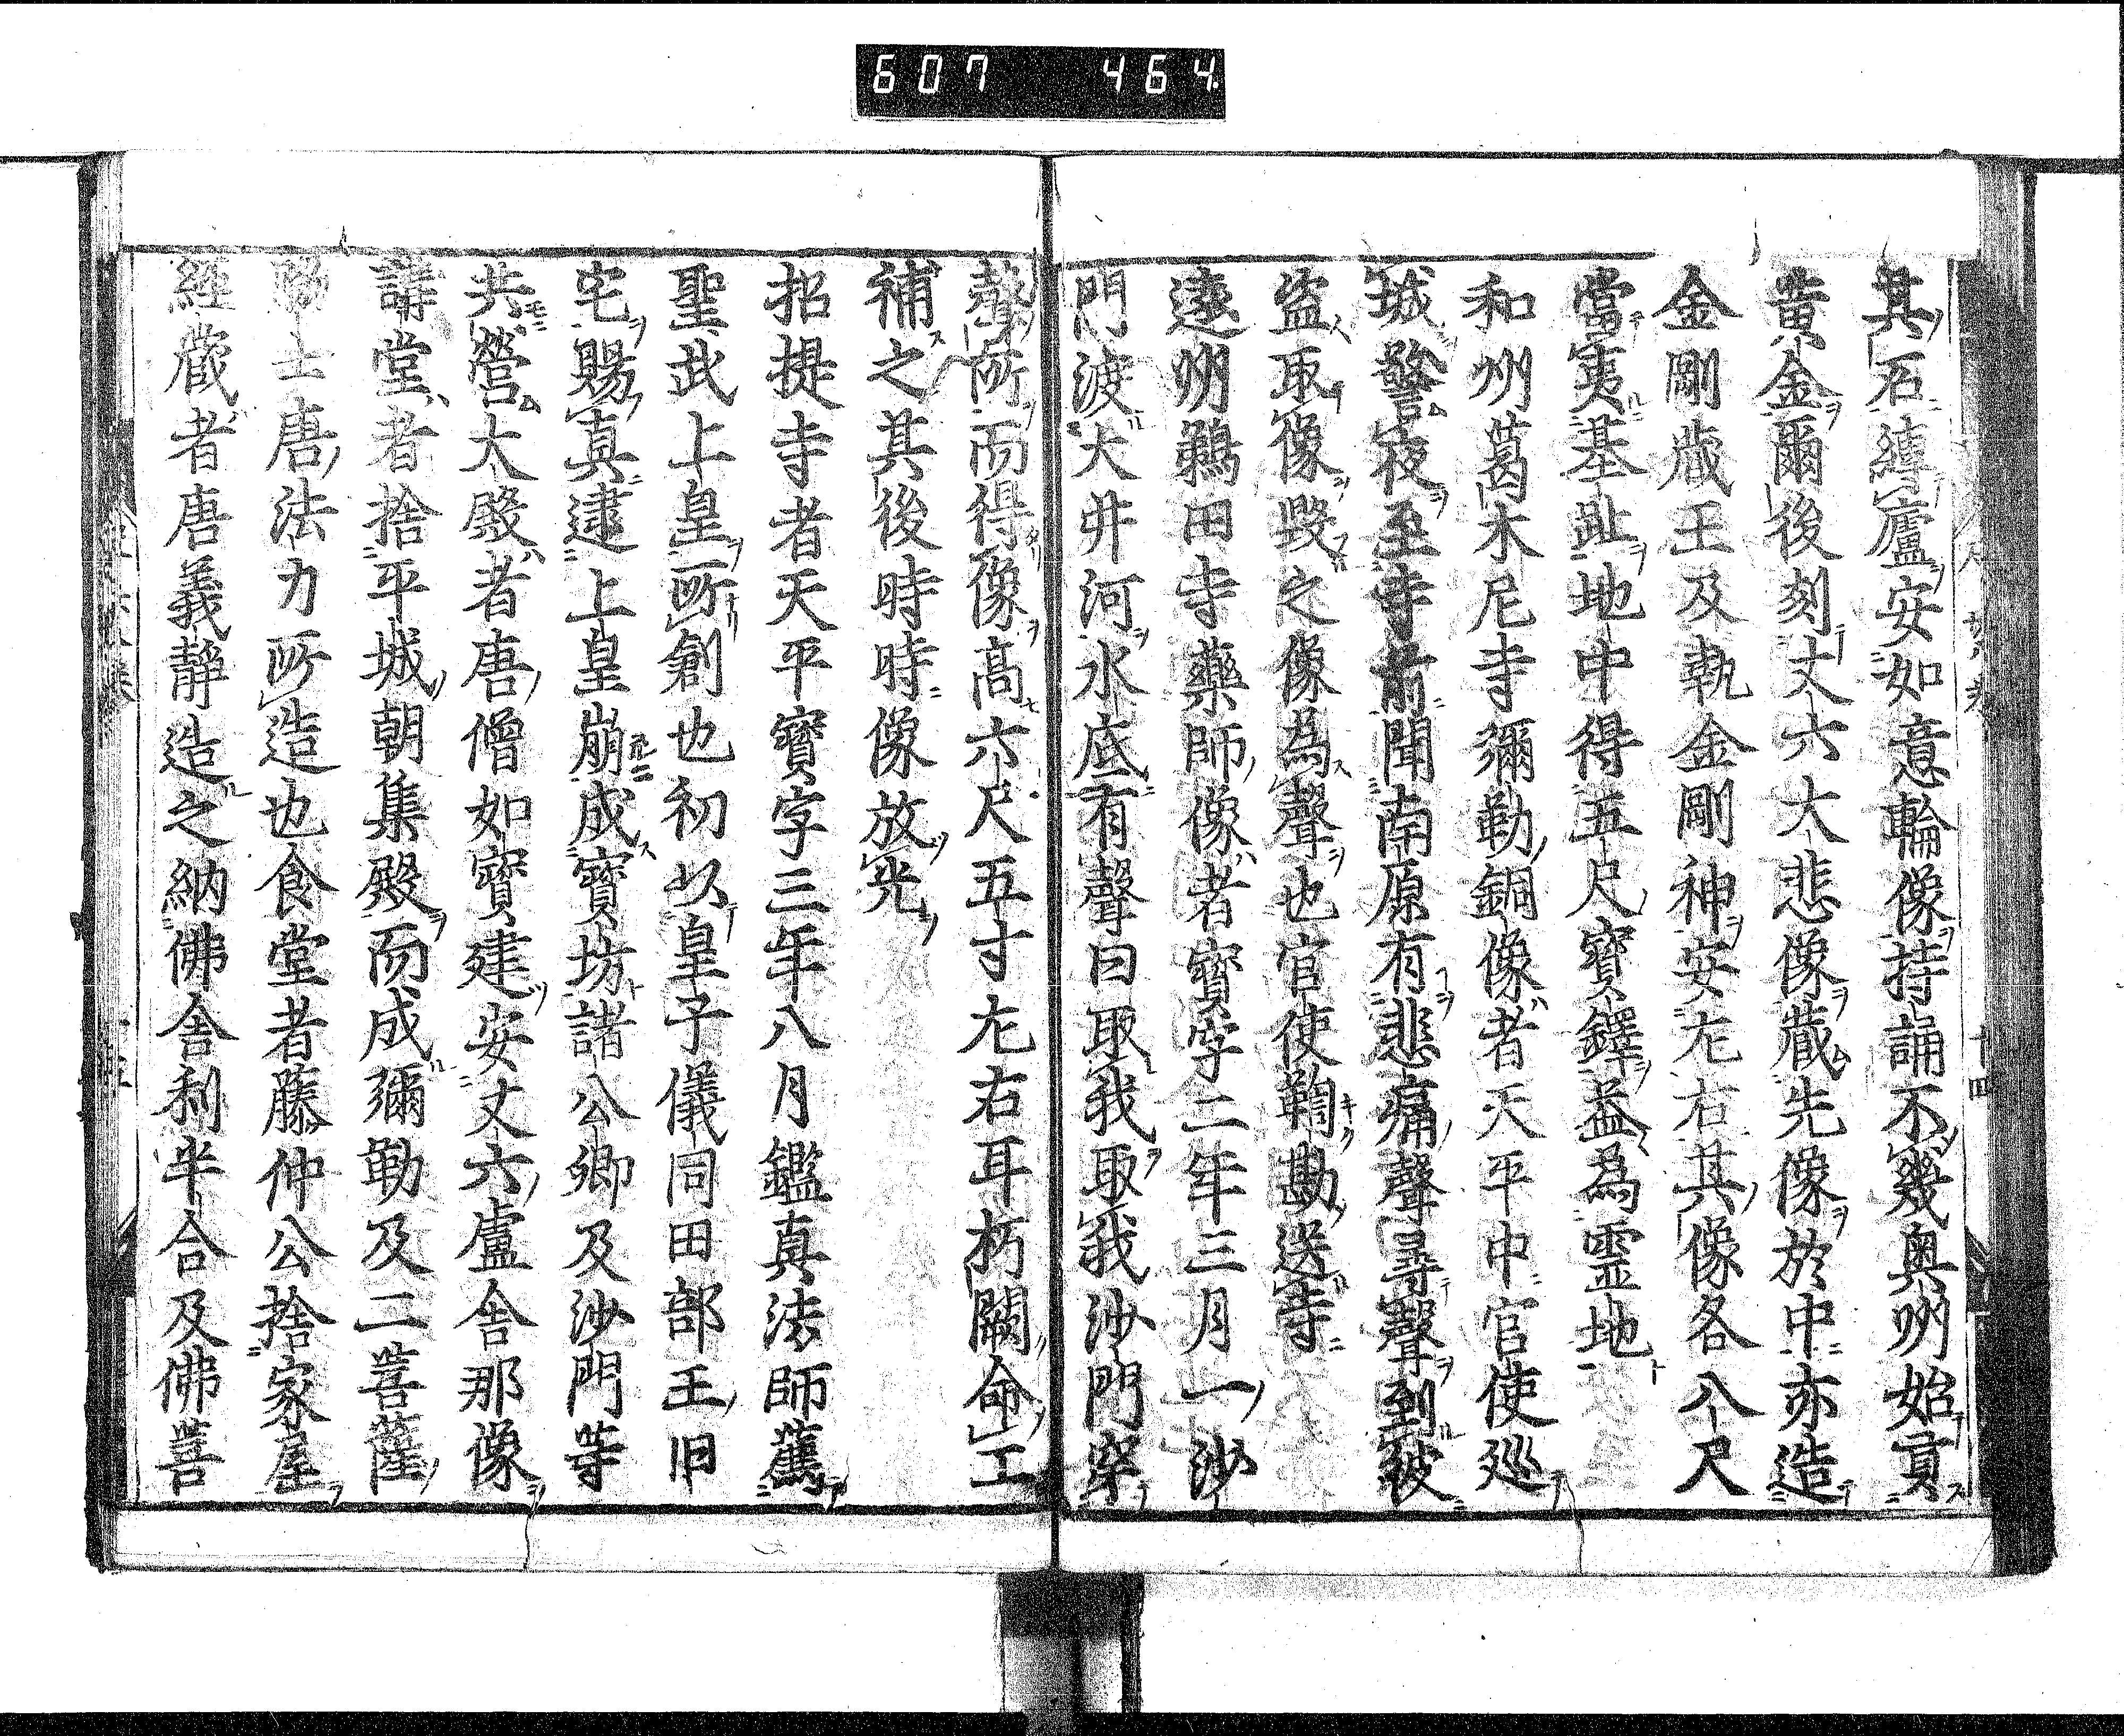 607 464
其石縳廬安如意輪像持誦不幾奥州始貢
黄金爾後刻丈六大悲像藏先像於中亦造
金剛藏王及執金剛神安左右其像各八尺
當夷基趾地中得五尺寶鐸益為霊地
和州葛木尼寺彌勒銅像者天平中官使廵
城警夜至寺前聞南原有悲痛聲尋聲到彼
盗取像毀之像為聲也官使鞫勘送寺
遠州鵜田寺藥師像者寳字二年三月一沙
門渡大井河水底有聲曰取我取我沙門穿
聲所而得像高六尺五寸左右耳朽闕命工
補之其後時時像放光
招提寺者天平寳字三年八月鑑真法師蔫
聖武上皇所創也初以皇子儀同田部王旧
宅賜真逮上皇崩成寳坊諸公卿及沙門等
共營大殿者唐僧如寳建安丈六盧舎那像
講堂者捨平城朝集殿而成彌勒及二菩薩
士唐法力所造也食堂者藤仲公捨家屋
經藏者唐義静造之納佛舎利半合及佛菩